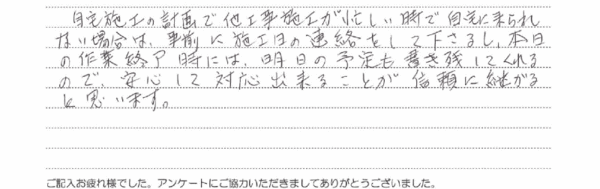 自宅施工の計画で他工事施工が忙しい時で自宅に来られ
ない場合は、事前に施工日の連絡をして下さるし、本日
の作業終了時には、明日の予定も書き残してくれる
ので、安心して対応出来ることが信頼に継がる
と思います。
ご記入お疲れ様でした。アンケートにご協力いただきましてありがとうございました。